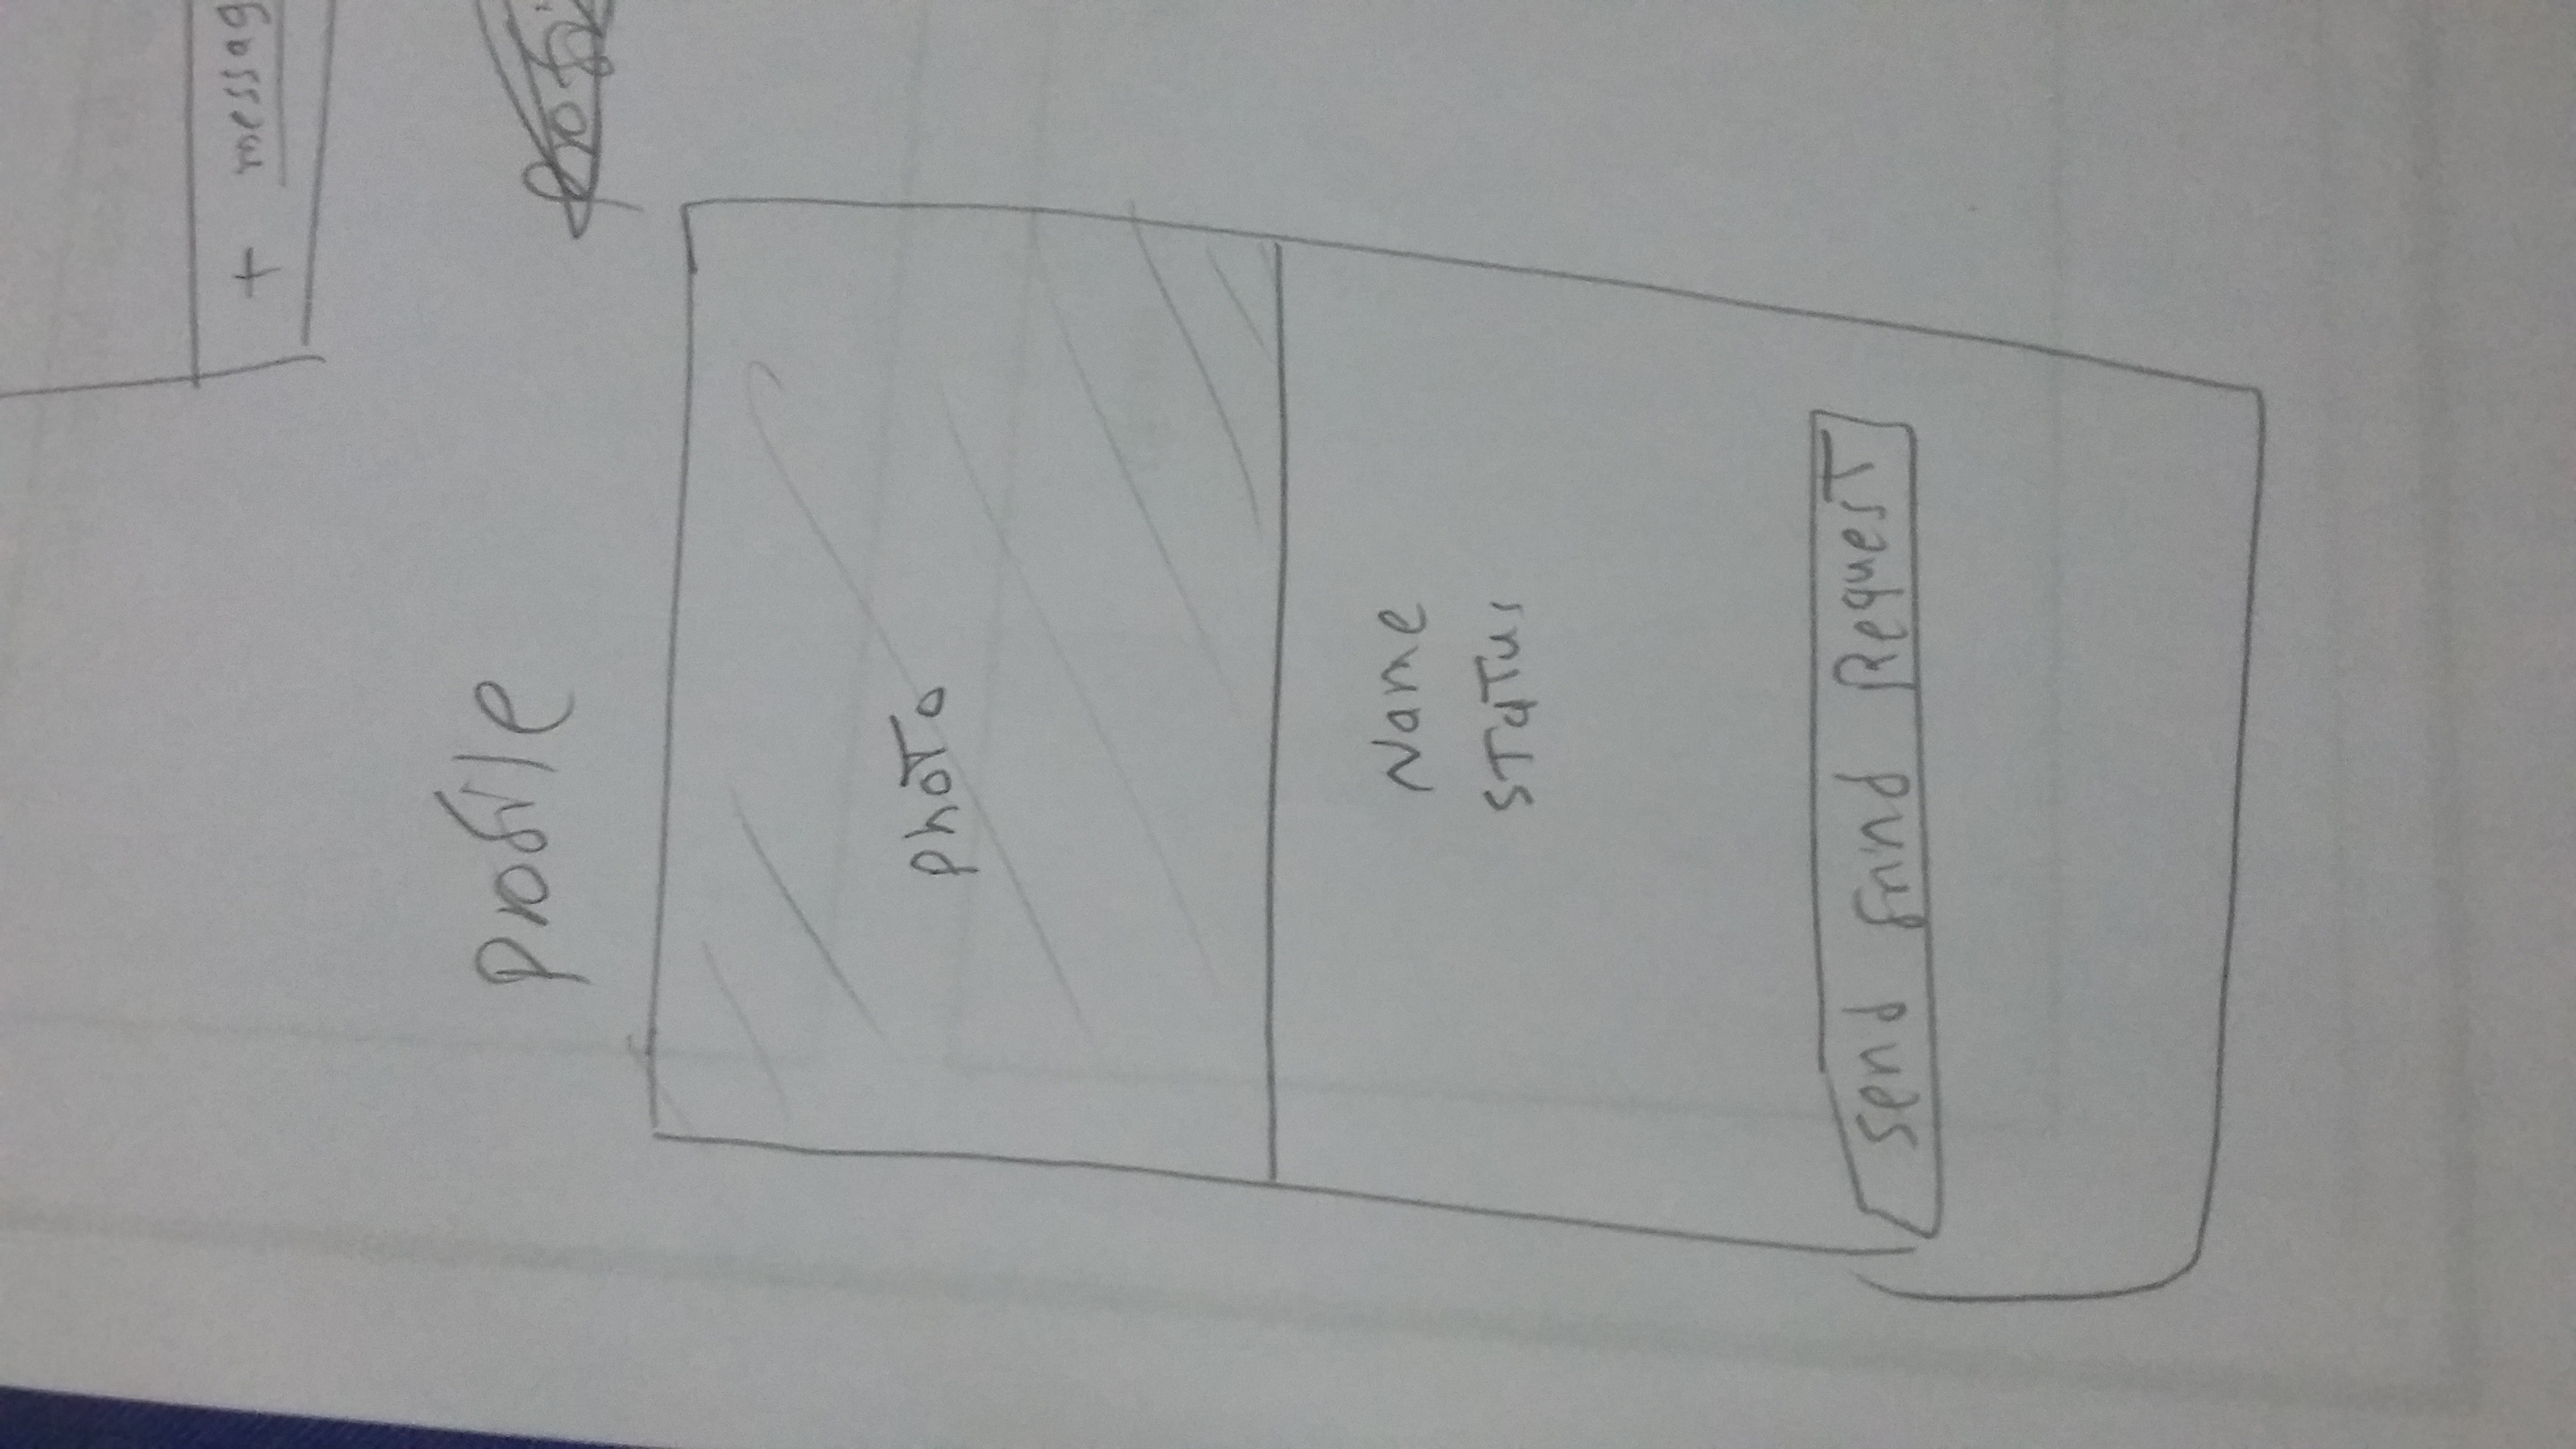 + messag
profile
profi
photo
Name
status
send frind Request